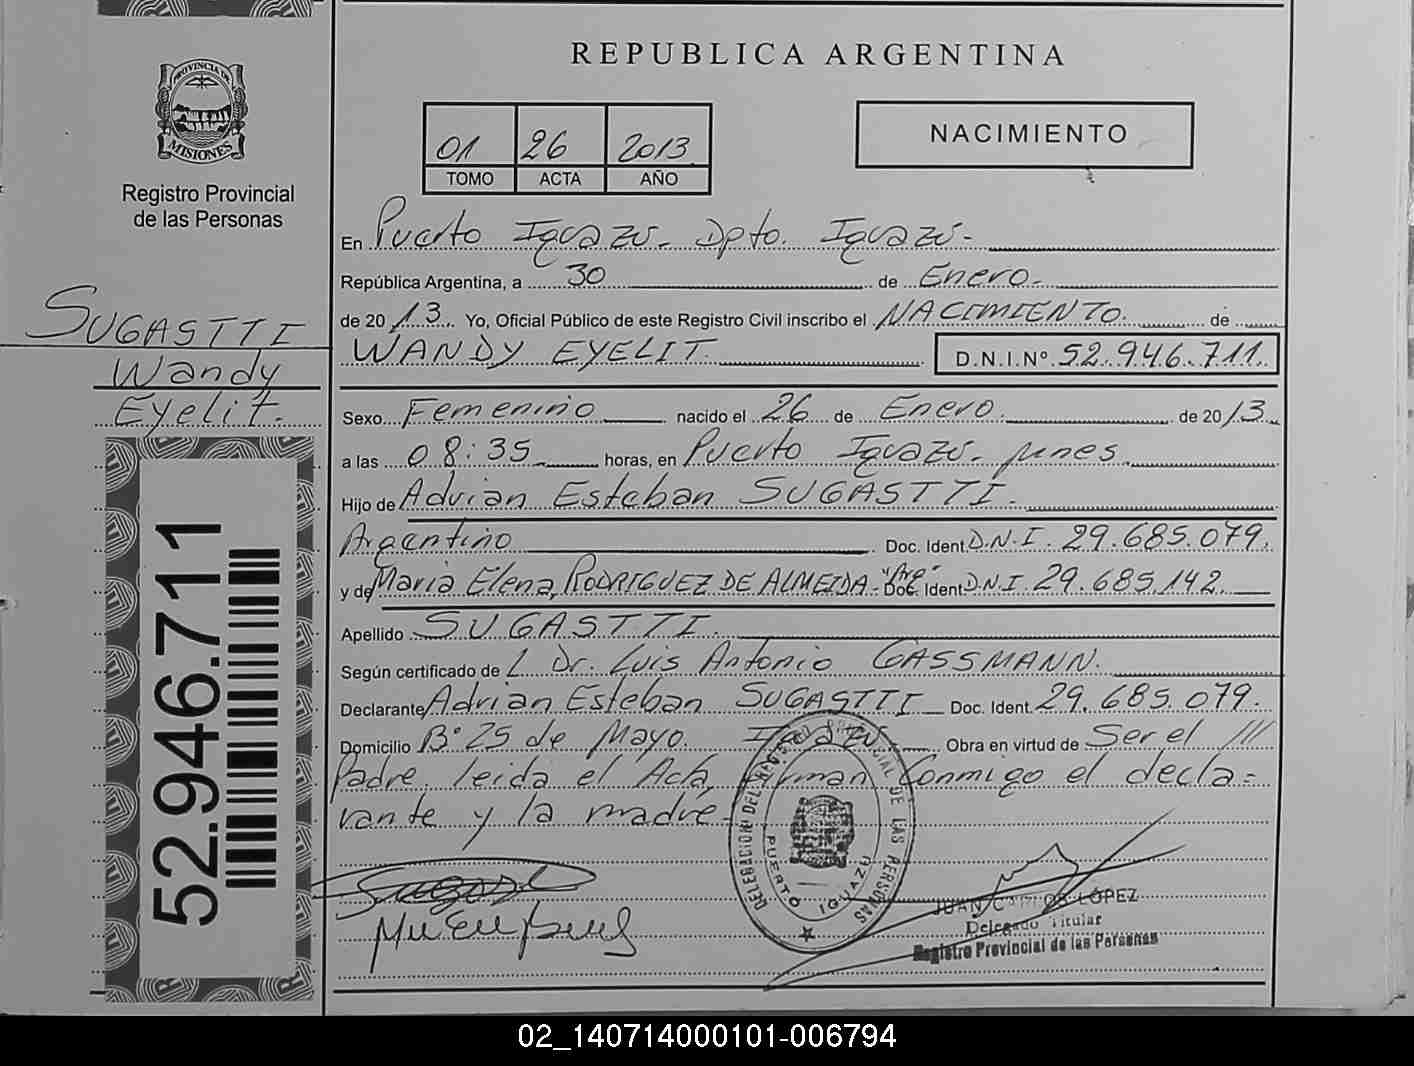 REPUBLICA ARGENTINA
PROVINCIA DE
MISIONES
Registro Provincial
de las Personas
01 26 2013
TOMO ACTA AÑO
NACIMIENTO
En Puerto Iguazú. Dpto. Iguazú-
República Argentina, a 30 de Enero.
de 2013. Yo, Oficial Público de este Registro Civil inscribo el NACIMIENTO. de
WANDY EYELIT. D.N.I.Nº 52.946.711.
SUGASTTI
Wandy
Eyelit.
Sexo Femenino nacido el 26 de Enero. de 2013
a las 08:35 horas, en Puerto Iguazú.
Hijo de Adrian Esteban SUGASTTI.
Argentino Doc. Ident. D.N.I. 29.685.079.
y de Maria Elena, RODRIGUEZ DE ALMEIDA- "Arg" Doc. Ident D.N.I. 29.685.142.
Apellido SUGASTTI.
Según certificado de L Dr. Luis Antonio GASSMANN.
Declarante Adrian Esteban SUGASTTI Doc. Ident. 29.685.079.
Domicilio Bº 25 de Mayo. Iguazú Obra en virtud de Ser el ///
Padre, leida el Acta, Firman Conmigo el decla=
rante y la madre-
52.946.711
DELEGACION DEL REGISTRO PROVINCIAL DE LAS PERSONAS
PUERTO IGUAZU
JUAN CARLOS LOPEZ
Delegado Titular
Registro Provincial de las Personas
02_140714000101-006794